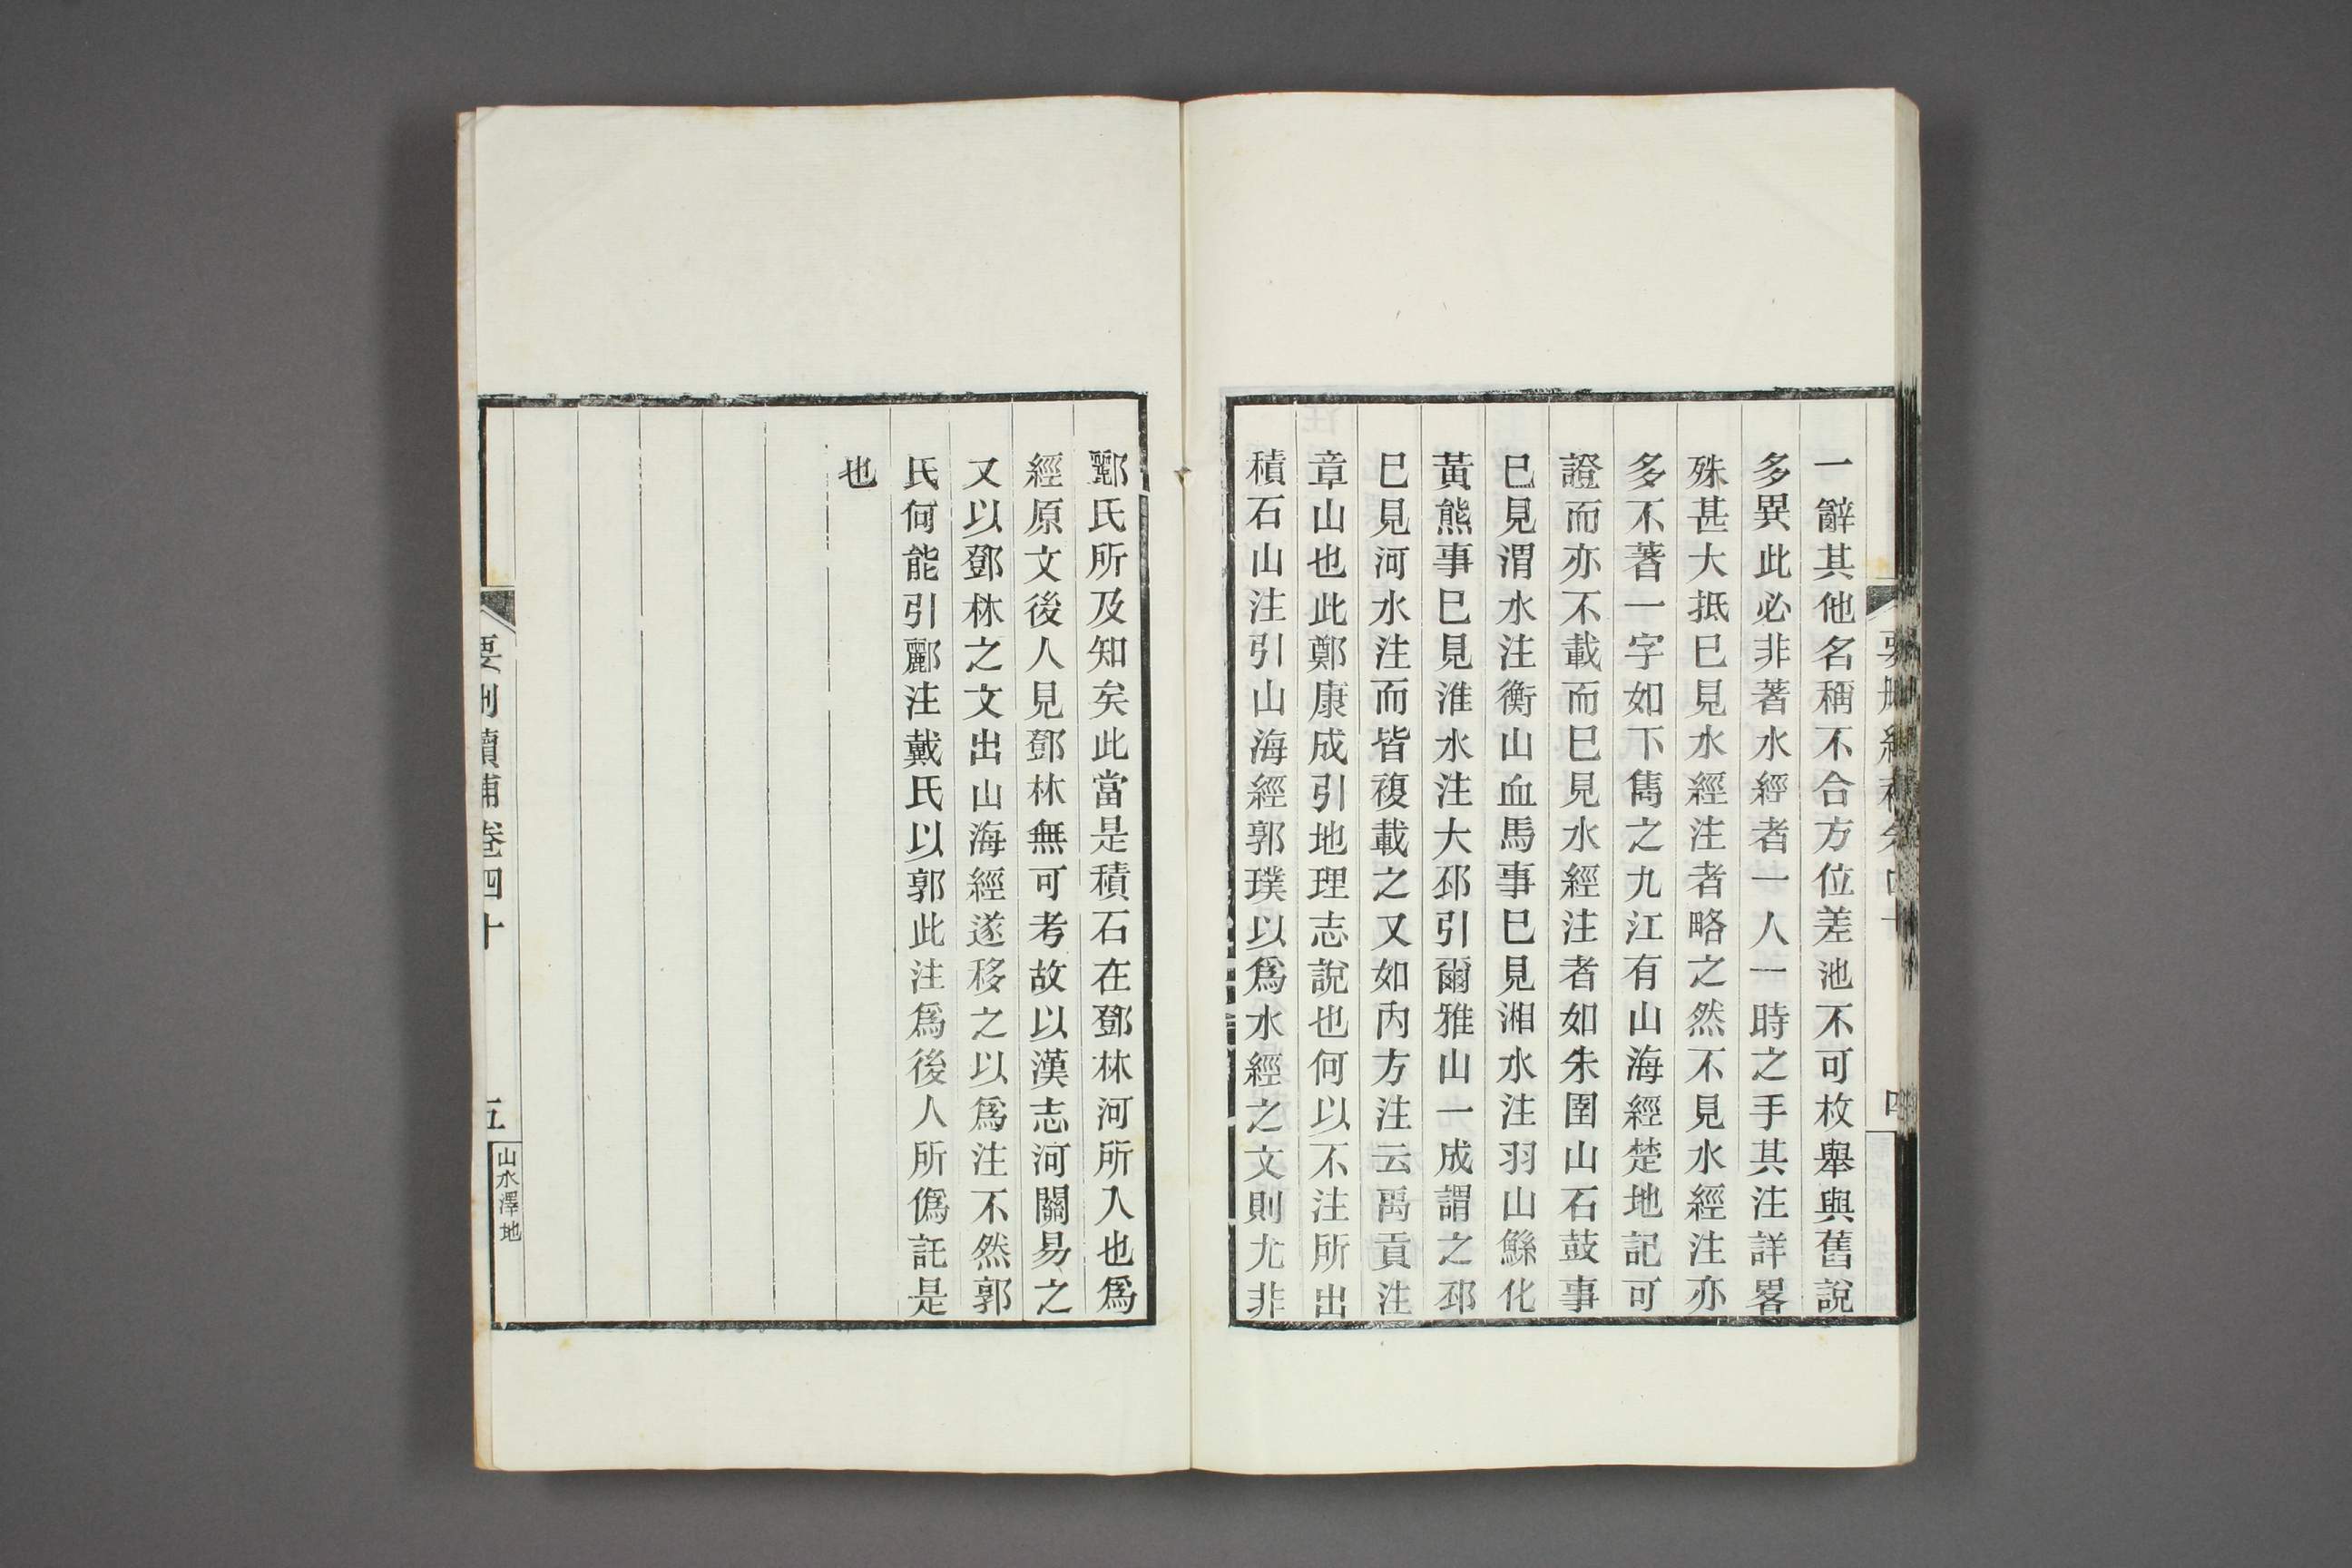 一辭其他名稱不合方位差池不可枚舉與舊說
多異此必非著水經者一人一時之手其注詳畧
殊甚大抵巳見水經注者略之然不見水經注亦
多不著一字如下雋之九江有山海經楚地記可
證而亦不載而巳見水經注者如朱圉山石鼓事
巳見渭水注衡山血馬事巳見湘水注羽山鯀化
黃熊事巳見淮水注大邳引爾雅山一成謂之邳
巳見河水注而皆複載之又如內方注云禹貢注
章山也此鄭康成引地理志說也何以不注所出
積石山注引山海經郭璞以爲水經之文則尤非
酈氏所及知矣此當是積石在鄧林河所入也爲
經原文後人見鄧林無可考故以漢志河關易之
又以鄧林之文出山海經遂移之以爲注不然郭
氏何能引酈注戴氏以郭此注爲後人所僞託是
也
要刪續補卷四十
五
山水澤地